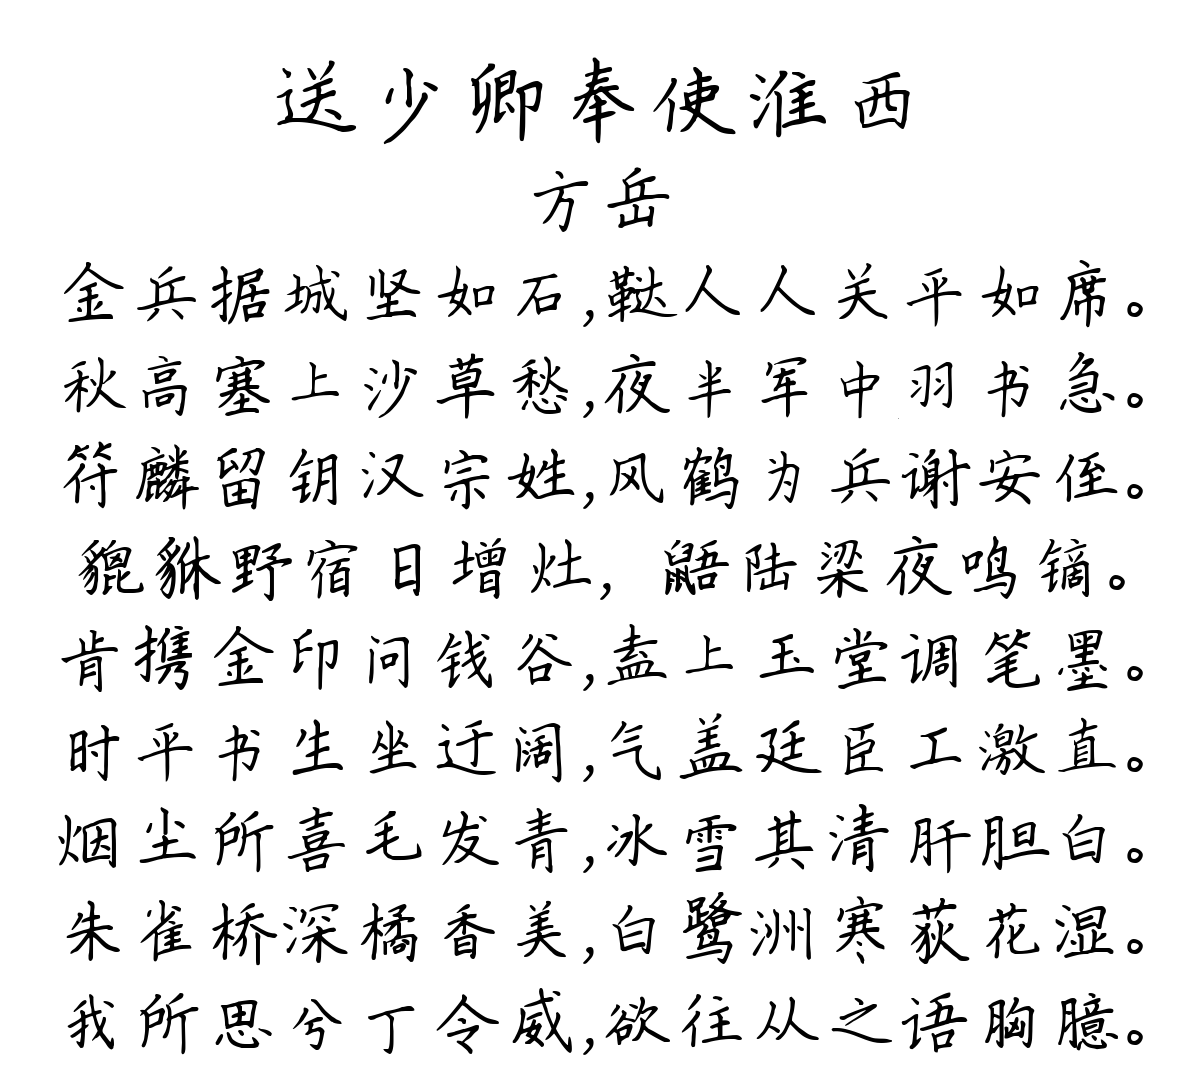 送少卿奉使淮西
方岳
金兵据城坚如石,鞑人人关平如席。
秋高塞上沙草愁,夜半军中羽书急。
符麟留钥汉宗姓,风鹤为兵谢安侄。
貔貅野宿日增灶,鼯陆梁夜鸣镝。
肯携金印问钱谷,盍上玉堂调笔墨。
时平书生坐迂阔,气盖廷臣工激直。
烟尘所喜毛发青,冰雪其清肝胆白。
朱雀桥深橘香美,白鹭洲寒荻花湿。
我所思兮丁令威,欲往从之语胸臆。